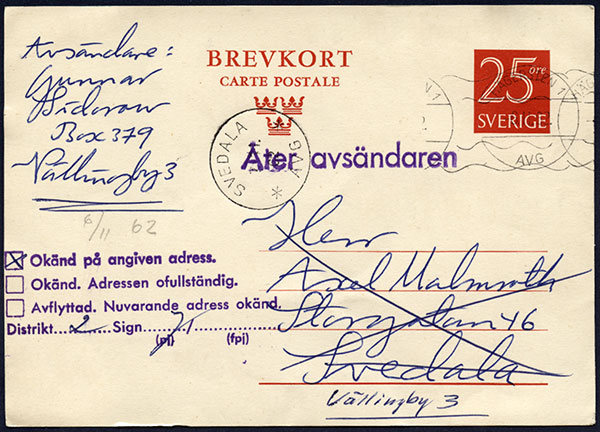 Avsändare:
Gunnar
Sidorow
Box 379
Vällingby 3
BREVKORT
CARTE POSTALE
25 öre
SVERIGE
HÄGERSTEN 1
AVG
SVEDALA
AVG
Åter avsändaren
6/11 62
Okänd på angiven adress.
Okänd. Adressen ofullständig.
Avflyttad. Nuvarande adress okänd.
Distrikt 2 Sign
(pj) (fpj)
Herr
Axel Malmroth
Storgatan 46
Svedala
Vällingby 3